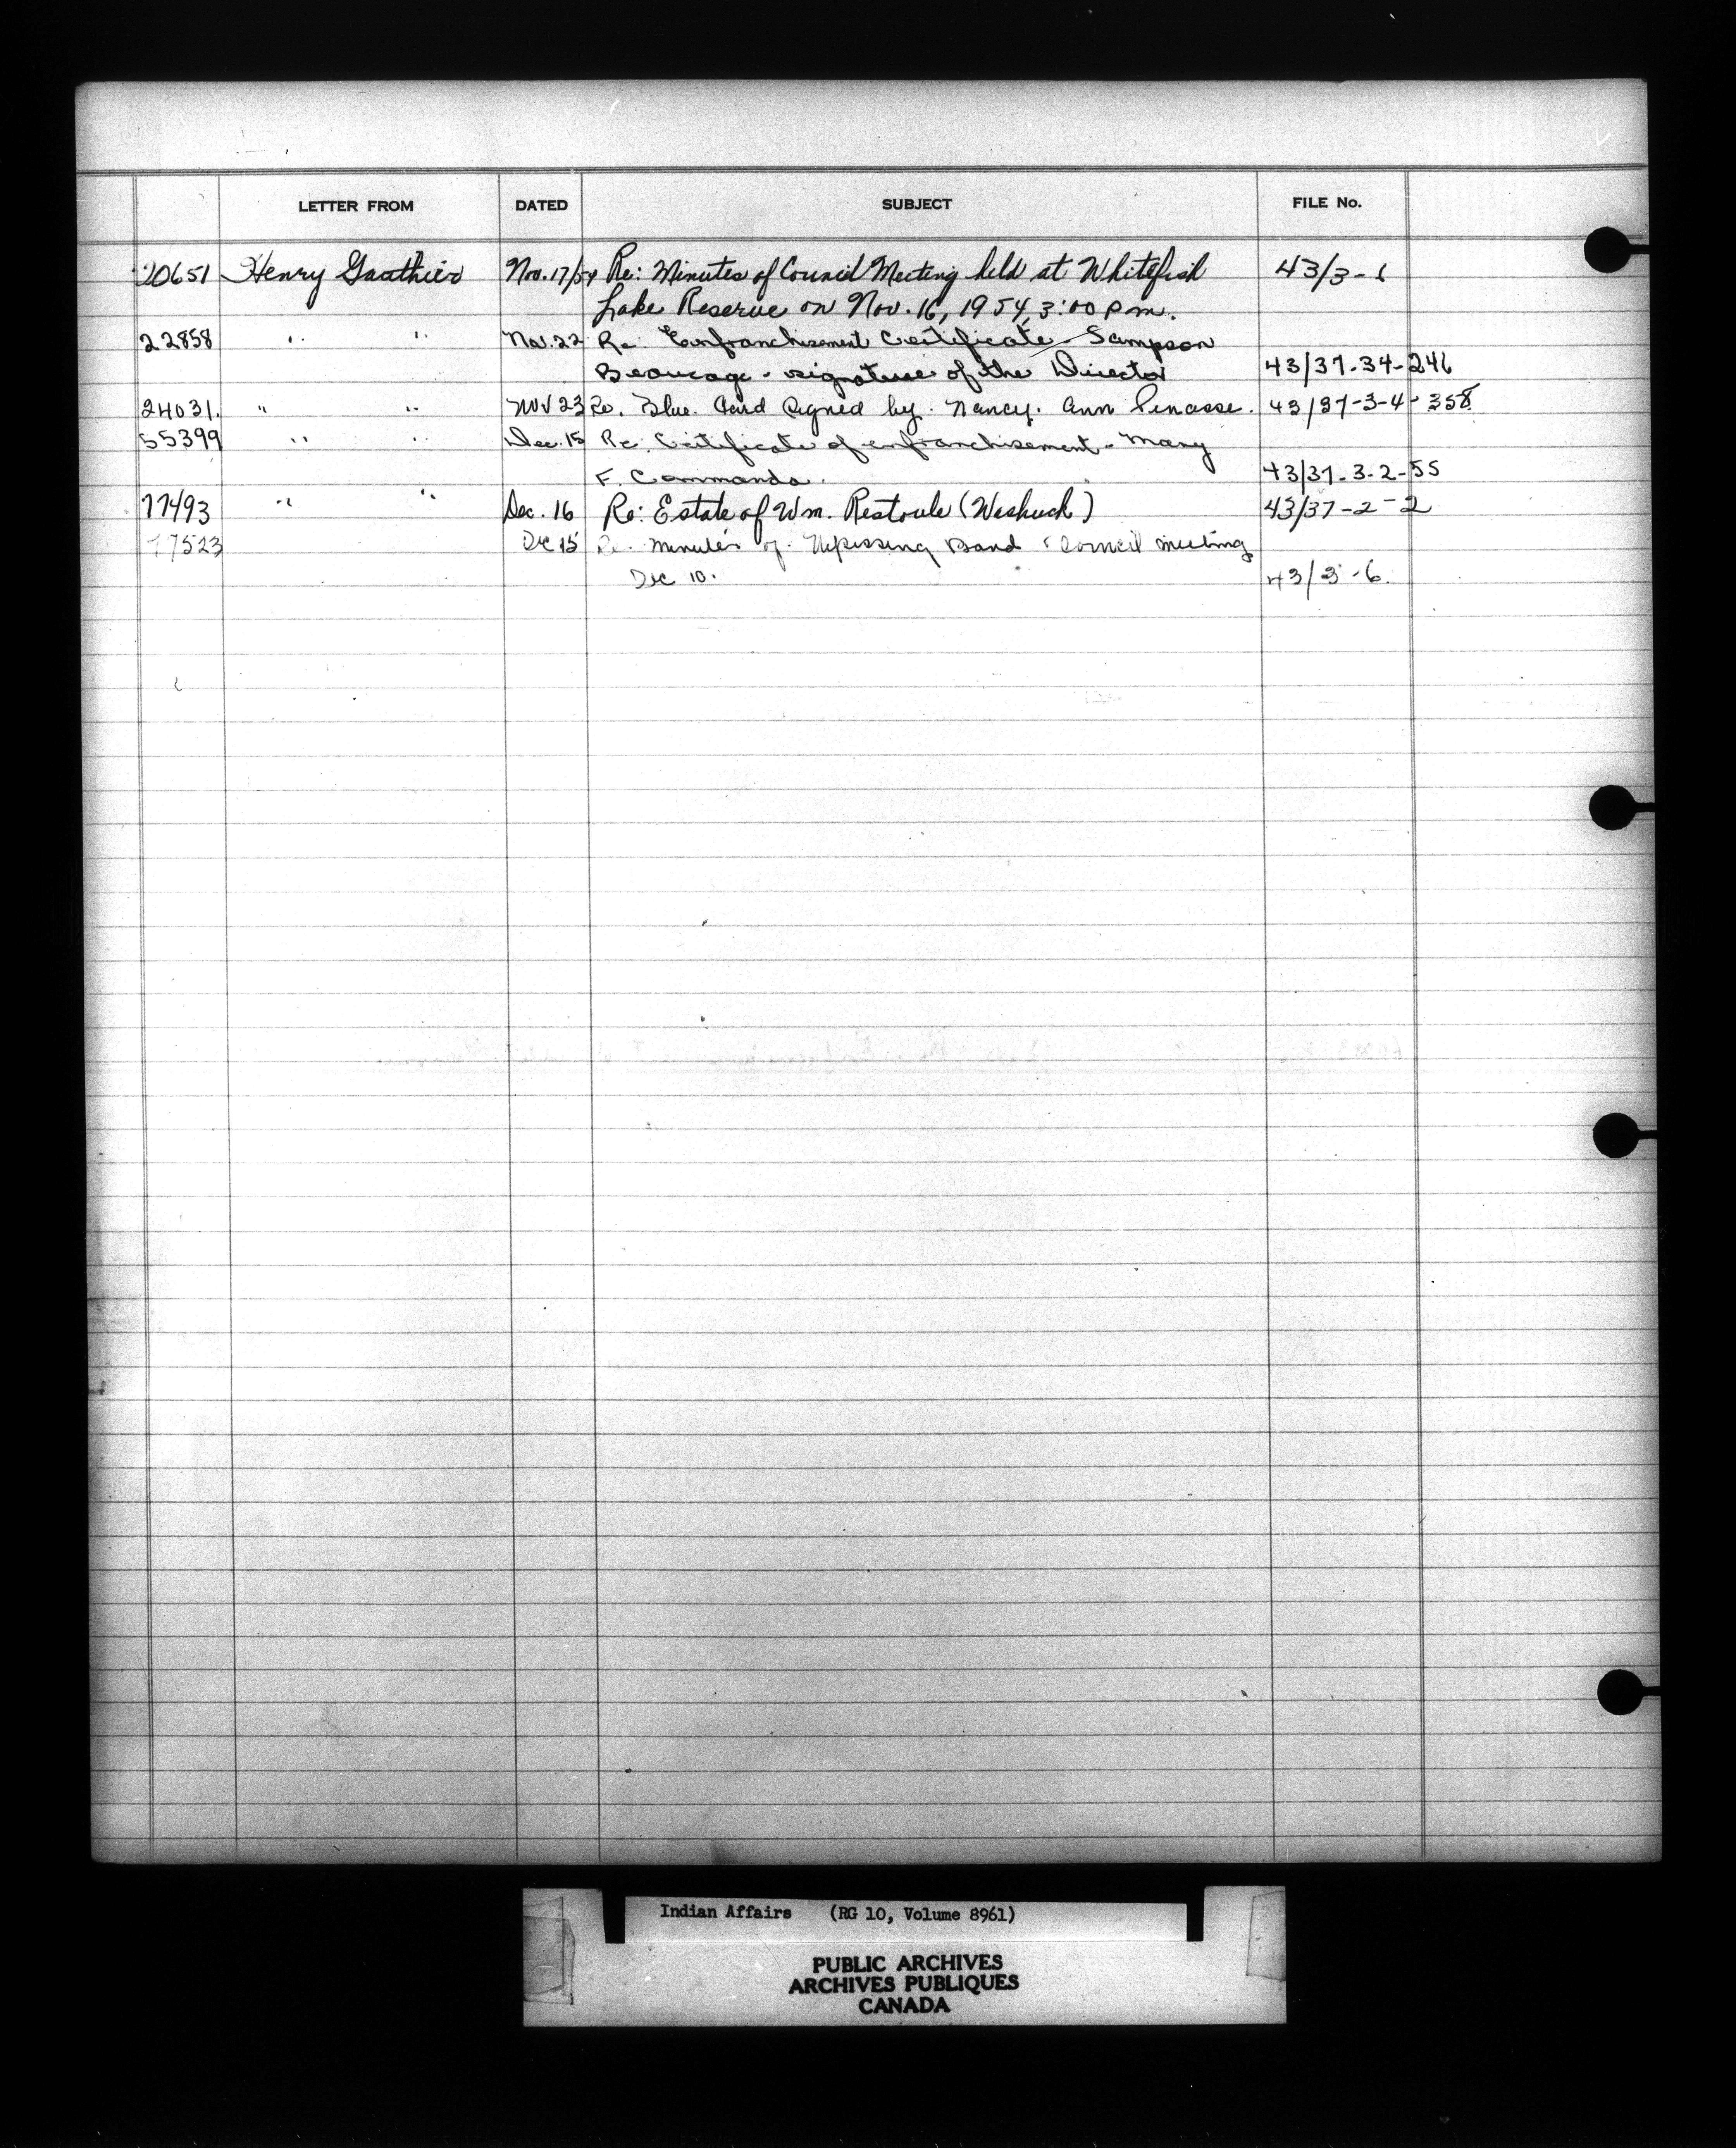 LETTER FROM DATED SUBJECT FILE No.
20651 Henry Gauthier Nov. 17/54 Re: Minutes of Council Meeting held at Whitefish 43/3-6
Lake Reserve on Nov. 16, 1954, 3:00 p.m.
22858 " " Nov. 22 Re: Enfranchisement Certificate - Sampson
Beaucage - signature of the Director 43/37-34-246
24031. " " Nov 23 Re. Blue Card signed by Nancy Ann Penasse. 43/37-3-4-358
55399 " " Dec. 15 Re. Certificate of enfranchisement - Mary
F. Commanda. 43/37-3-2-55
77493 " " Dec. 16 Re: Estate of Wm. Restoule (Weshuck) 43/37-2-2
77523 Dec 15 Re. Minutes of Nipissing Band Council meeting
Dec 10. 43/3-6.
Indian Affairs (RG 10, Volume 8961)
PUBLIC ARCHIVES
ARCHIVES PUBLIQUES
CANADA